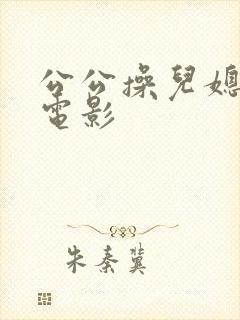 公公操兒媳
電影
朱秦冀